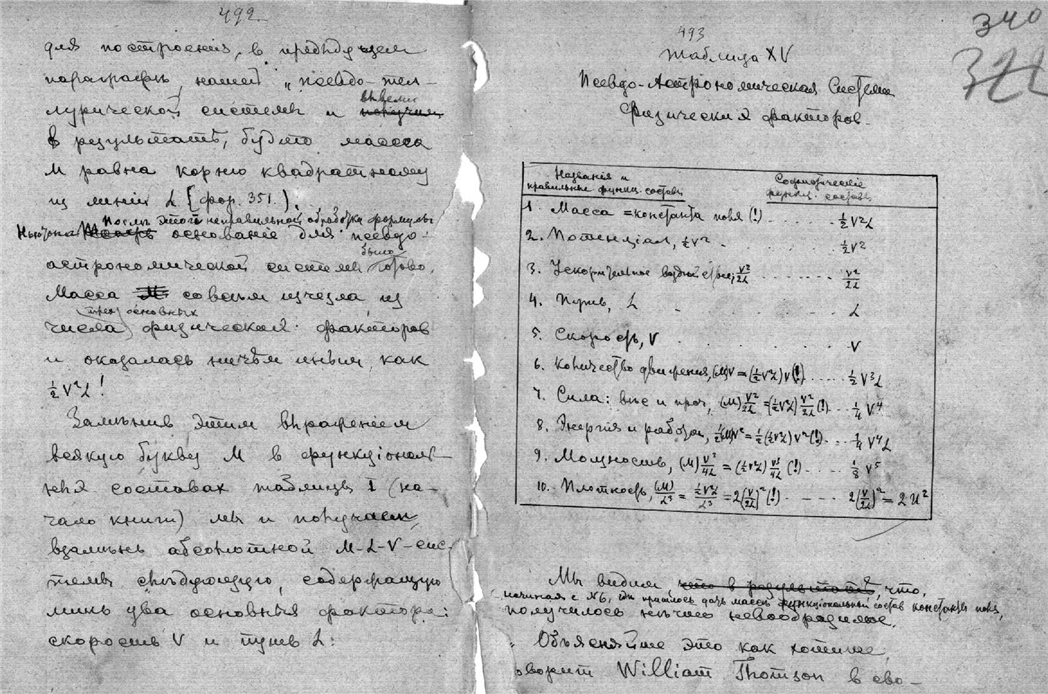 492
для построенія, в предыдущем
параграфѣ, нашей „псевдо-тел-
лурической системы и ввели
в результатѣ, будто масса
М равна корню квадратному
из линіи L [фор. 351].
Послѣ этого неправильной обработки формулы
Ньютона основаніе для псевдо-
астрономической системы было готово.
Масса совсѣм исчезла из
числа трех основных физических факторов
и оказалась ничѣм иным, как
½ V²L!
Замѣнив этим выраженіем
всякую букву М в функціональ-
ных составах таблицы I (на-
чало книги) мы и получаем,
взамѣнъ абсолютной M-L-V-сис-
темы слѣдующую, содержащую
лишь два основных фактора:
скорость V и путь L:
493
340
322
Таблица XV
Псевдо-Астрономическая Система
физических факторов.
Названія и правильные функц. составы
Софистическіе функц. составы
1. Масса = константа поля (!) ½ V²L
2. Потенціал, ½ V² ½ V²
3. Ускорительное воздѣйствіе, V²/2L V²/2L
4. Путь, L L
5. Скорость, V V
6. Количество движенія, (M)V = (½V²L)V (!) ½ V³L
7. Сила: вѣс и проч, (M) V²/2L = (½V²L) V²/2L (!) ¼ V⁴
8. Энергія и работа, ½(M)V² = ½(½V²L)V² (!) ¼ V⁴L
9. Мощность, (M) V³/4L = (½V²L) V³/4L (!) ⅛ V⁵
10. Плотность, (M)/L³ = ½V²L/L³ = 2(V/2L)² (!) 2(V/2L)² = 2U²
Мы видим что в результатѣ, что,
начиная с №6, гдѣ пришлось дать массѣ функціональный состав константы поля,
получилось нѣчто невообразимое.
„Объясняйте это как хотите,
говорит William Thomson в сво-